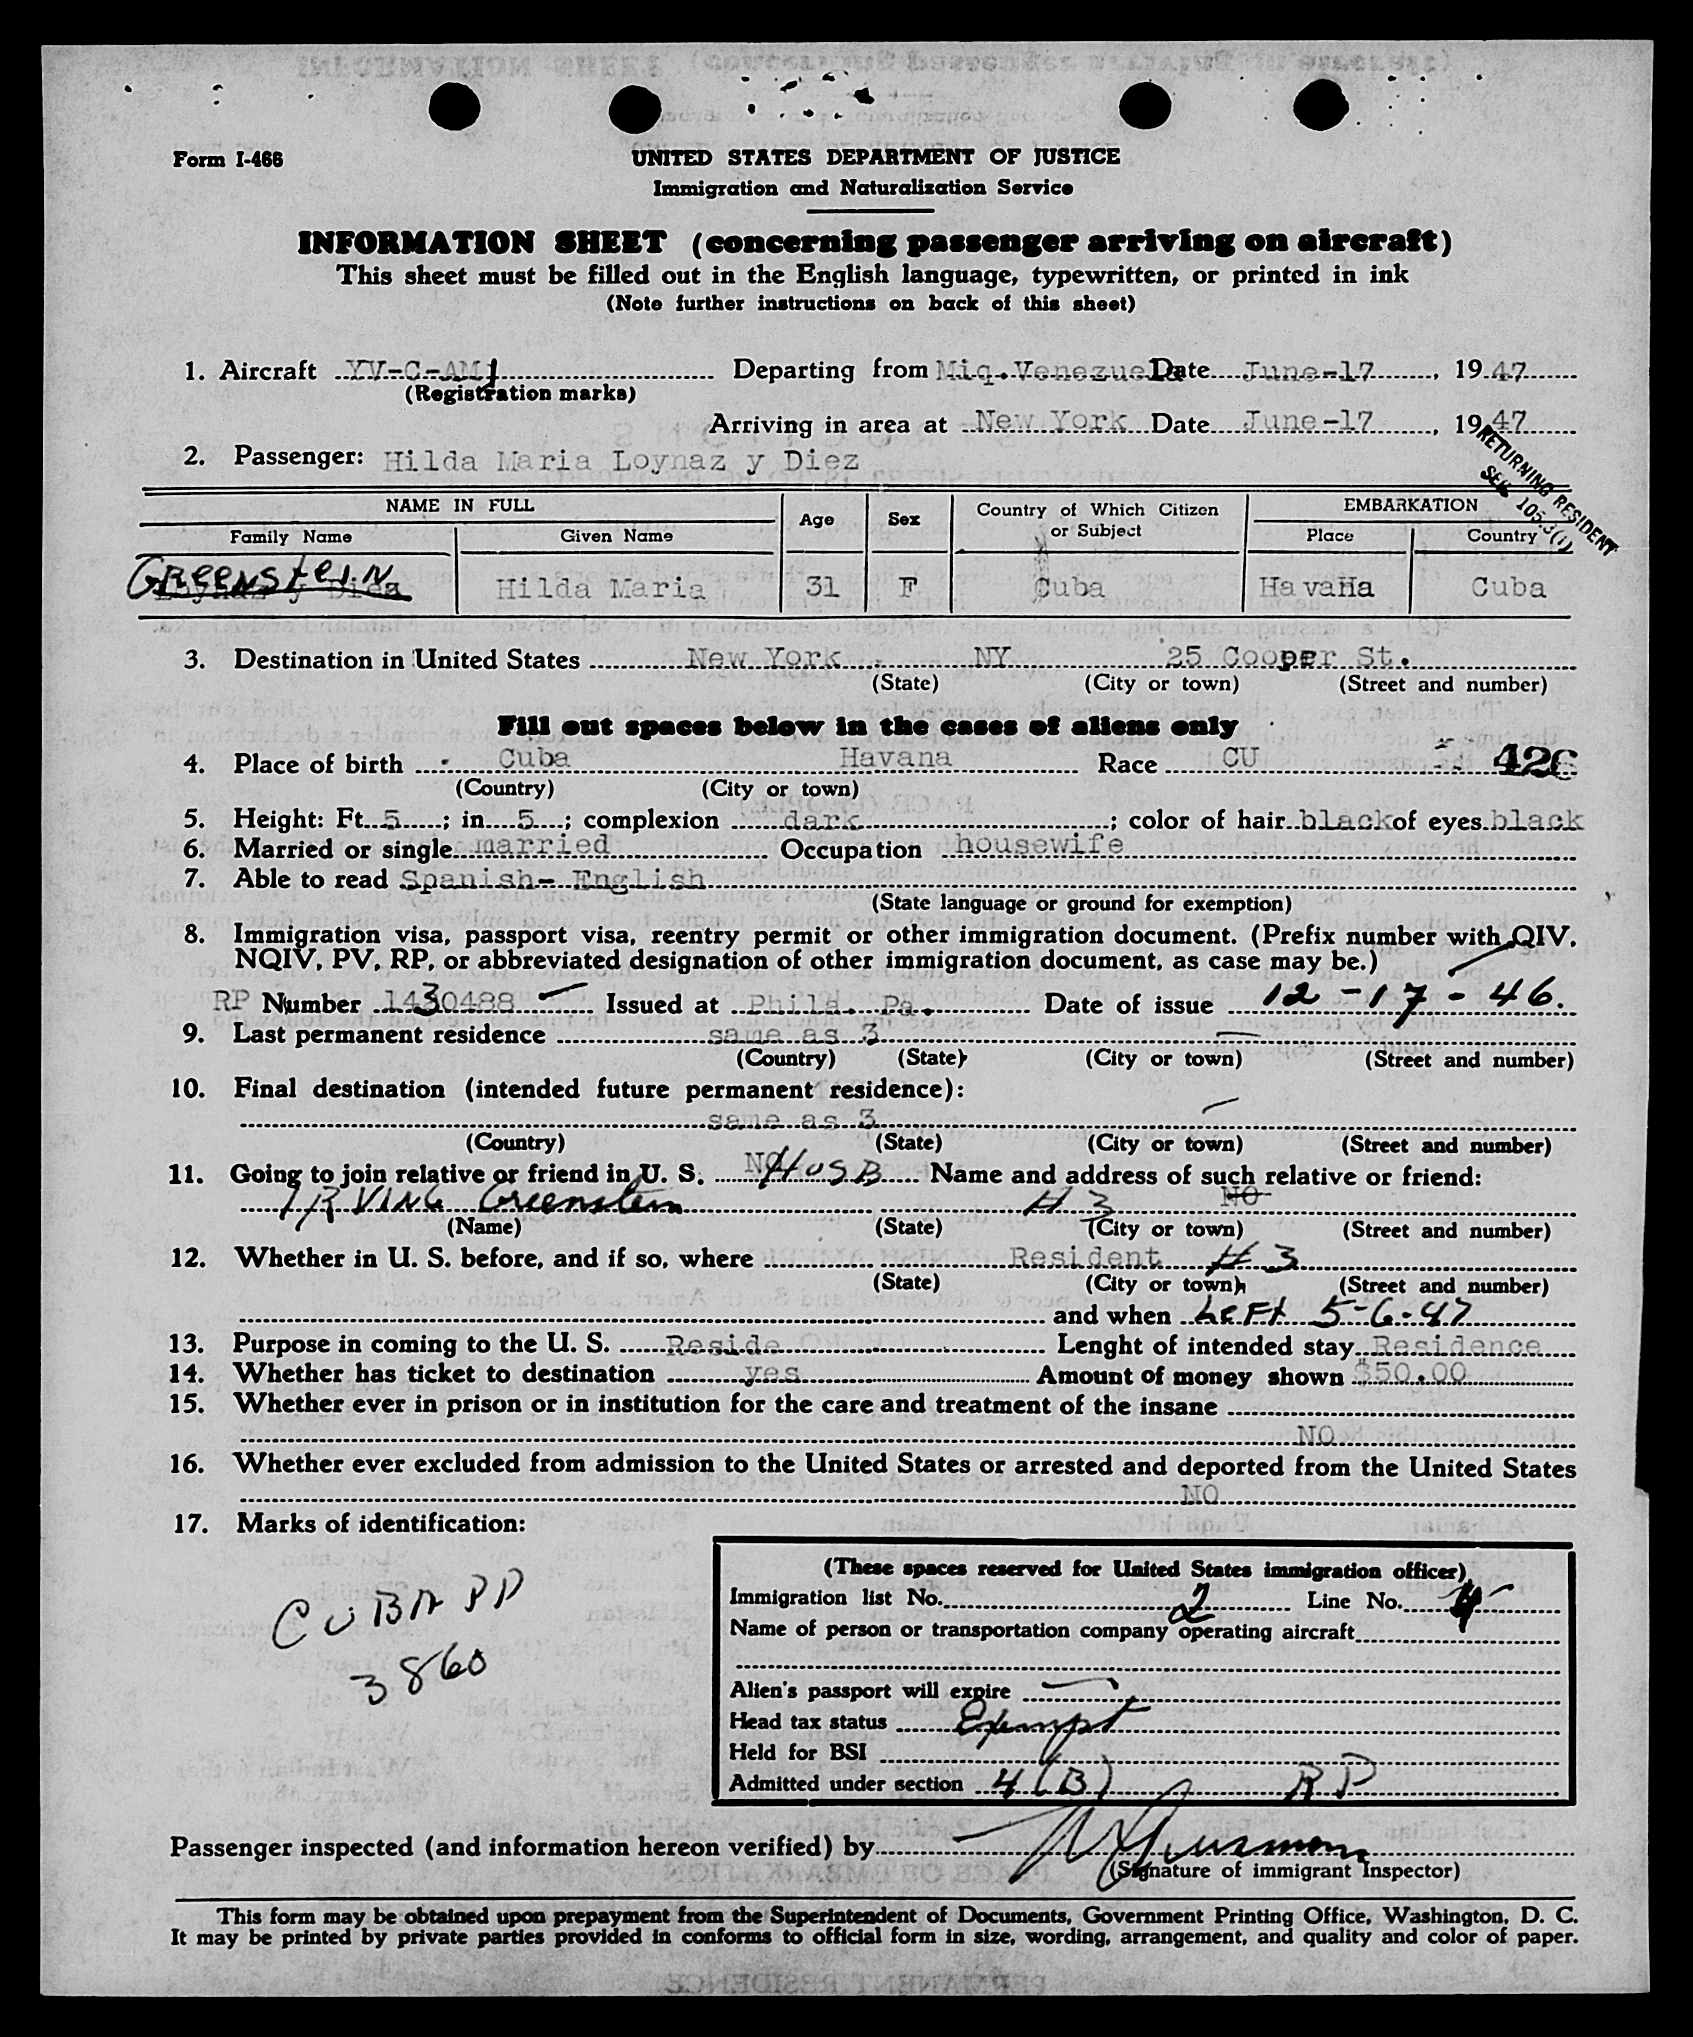 Form I-466
UNITED STATES DEPARTMENT OF JUSTICE
Immigration and Naturalization Service
INFORMATION SHEET (concerning passenger arriving on aircraft)
This sheet must be filled out in the English language, typewritten, or printed in ink
(Note further instructions on back of this sheet)
1. Aircraft YV-C-AM1 Departing from Miq.Venezuela Date June-17, 1947
(Registration marks)
Arriving in area at New York Date June-17, 1947
RETURNING RESIDENT
2. Passenger: Hilda Maria Loynaz y Diez
NAME IN FULL Age Sex Country of Which Citizen or Subject EMBARKATION
Family Name Given Name Place Country
Greenstein
Loynaz y Diez Hilda Maria 31 F Cuba Havana Cuba
3. Destination in United States New York NY 25 Cooper St.
(State) (City or town) (Street and number)
Fill out spaces below in the cases of aliens only
4. Place of birth Cuba Havana Race CU 426
(Country) (City or town)
5. Height: Ft. 5; in. 5; complexion dark; color of hair black of eyes black
6. Married or single married Occupation housewife
7. Able to read Spanish- English
(State language or ground for exemption)
8. Immigration visa, passport visa, reentry permit or other immigration document. (Prefix number with QIV,
NQIV, PV, RP, or abbreviated designation of other immigration document, as case may be.)
RP Number 1430488 Issued at Phila. Pa. Date of issue 12-17-46.
9. Last permanent residence same as 3
(Country) (State) (City or town) (Street and number)
10. Final destination (intended future permanent residence):
same as 3
(Country) (State) (City or town) (Street and number)
11. Going to join relative or friend in U. S. NO HUSB Name and address of such relative or friend:
IRVING Greenstein # 3 NO
(Name) (State) (City or town) (Street and number)
12. Whether in U. S. before, and if so, where Resident # 3
(State) (City or town) (Street and number)
and when Left 5-6-47
13. Purpose in coming to the U. S. Reside Lenght of intended stay Residence
14. Whether has ticket to destination yes Amount of money shown $50.00
15. Whether ever in prison or in institution for the care and treatment of the insane
NO
16. Whether ever excluded from admission to the United States or arrested and deported from the United States
NO
17. Marks of identification:
CUBA PP
3860
(These spaces reserved for United States immigration officer)
Immigration list No. 2 Line No. 4
Name of person or transportation company operating aircraft
Alien's passport will expire
Head tax status Exempt
Held for BSI
Admitted under section 4(B) RP
Passenger inspected (and information hereon verified) by
(Signature of immigrant Inspector)
This form may be obtained upon prepayment from the Superintendent of Documents, Government Printing Office, Washington, D. C.
It may be printed by private parties provided in conforms to official form in size, wording, arrangement, and quality and color of paper.